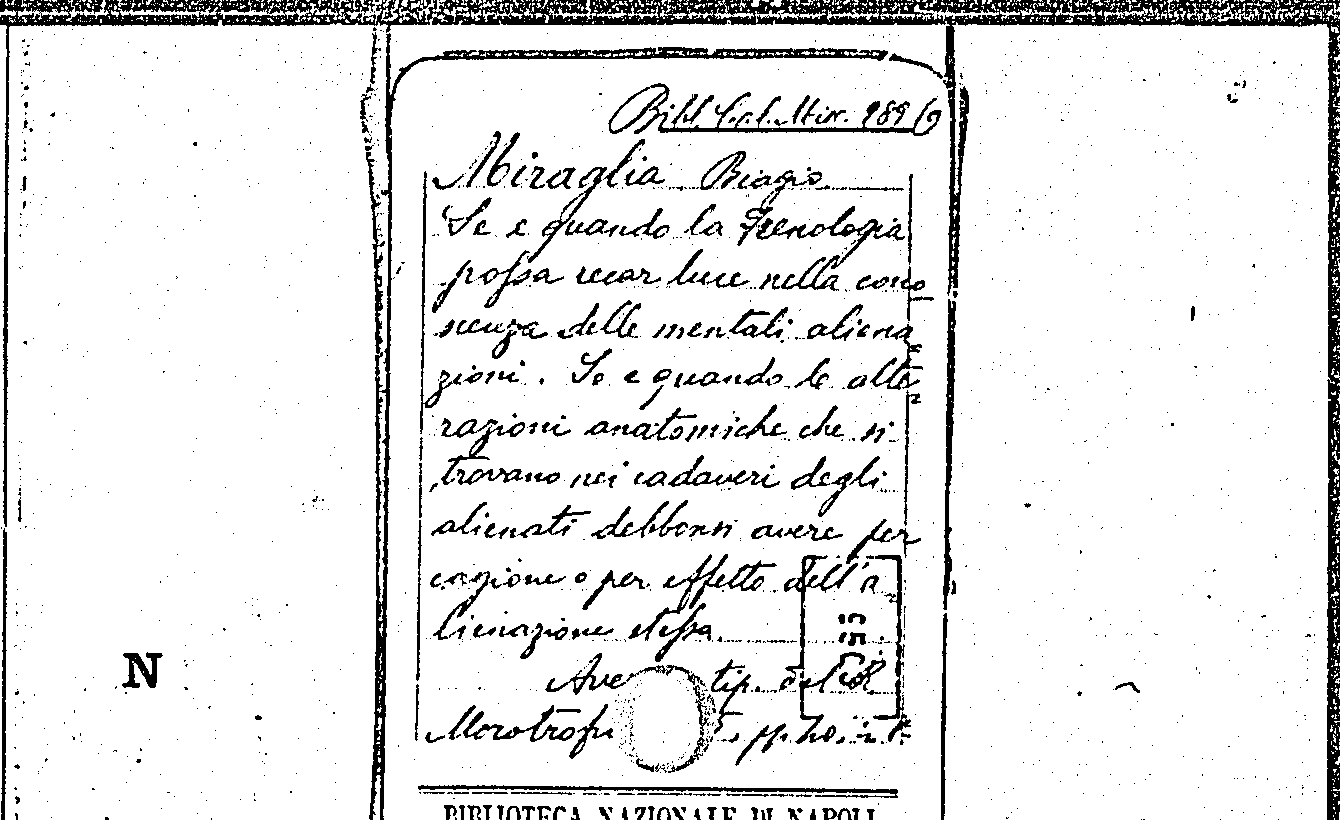 Bibl. Mir. 289 (9
Miraglia Biagio
Se e quando la Frenologia
possa recar luce nella cono
scenza delle mentali aliena
zioni. Se e quando le alte
razioni anatomiche che si
trovano nei cadaveri degli
alienati debbonsi avere per
cagione o per effetto dell'a
lienazione stessa.
Ave tip. del R.
Morotrofi pp. 20. in
N
BIBLIOTECA NAZIONALE DI NAPOLI